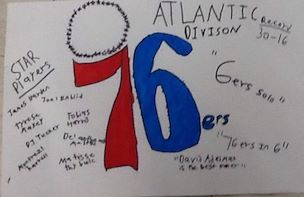 ATLANTIC
DIVISON
Record
30-16
STAR
Players
James Harden
Joel Embiid
Tyrese
Maxey
Tobias
Harris
P.J. Tucker
Montrezl
Harrell
Matisse
thybulle
76ers
"6ers solo"
"76ers In 6"
is the best ever"